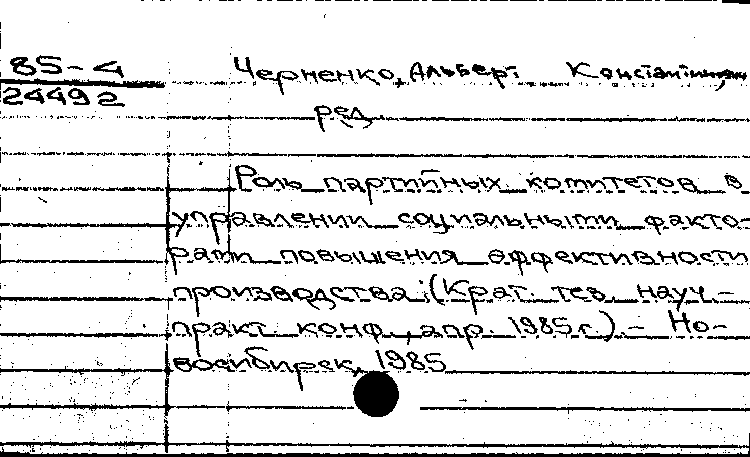 85-4
24492
Черненко, Альберт Константинович,
ред.
Роль партийных комитетов в
управлении социальными факто-
рами повышения эффективности
производства: (Крат. тез. науч.-
практ. конф., апр. 1985 г.). - Но-
восибирск, 1985